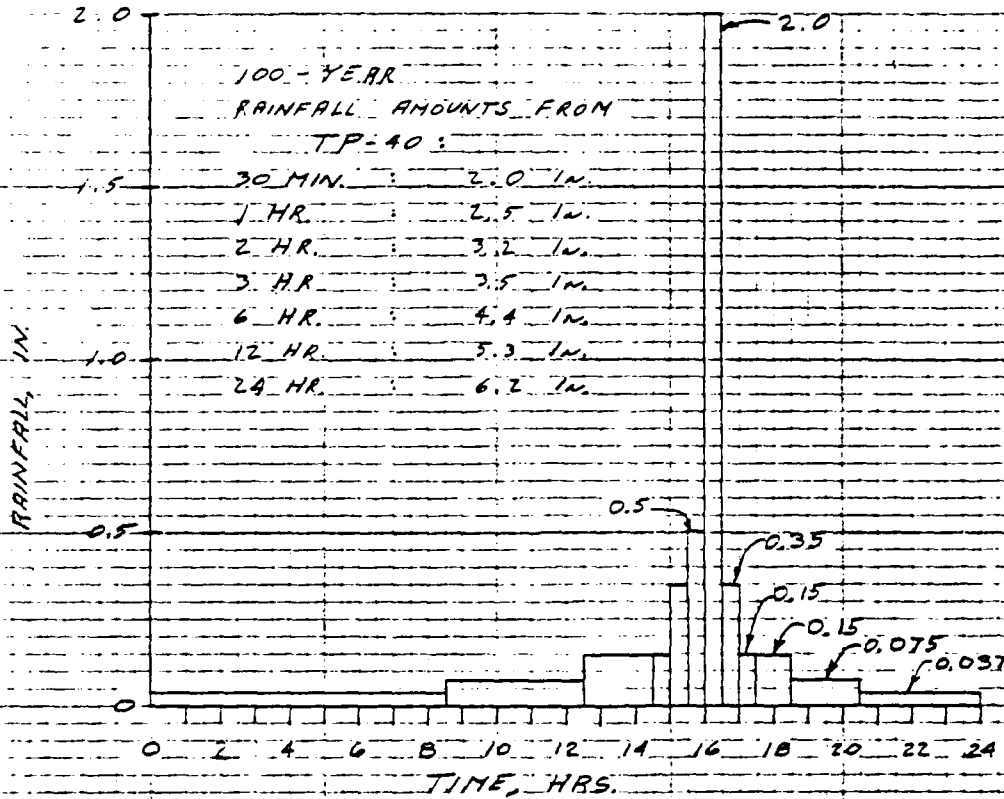 2.0
2.0
100-YEAR
RAINFALL AMOUNTS FROM
TP-40:
1.5
30 MIN. : 2.0 IN.
1 HR. : 2.5 IN.
2 HR. : 3.2 IN.
3 HR : 3.5 IN.
6 HR. : 4.4 IN.
1.0
12 HR. : 5.3 IN.
24 HR. : 6.2 IN.
RAINFALL, IN.
0.5
0.5
0.35
0.15
0.15
0.075
0.037
0
0 2 4 6 8 10 12 14 16 18 20 22 24
TIME, HRS.